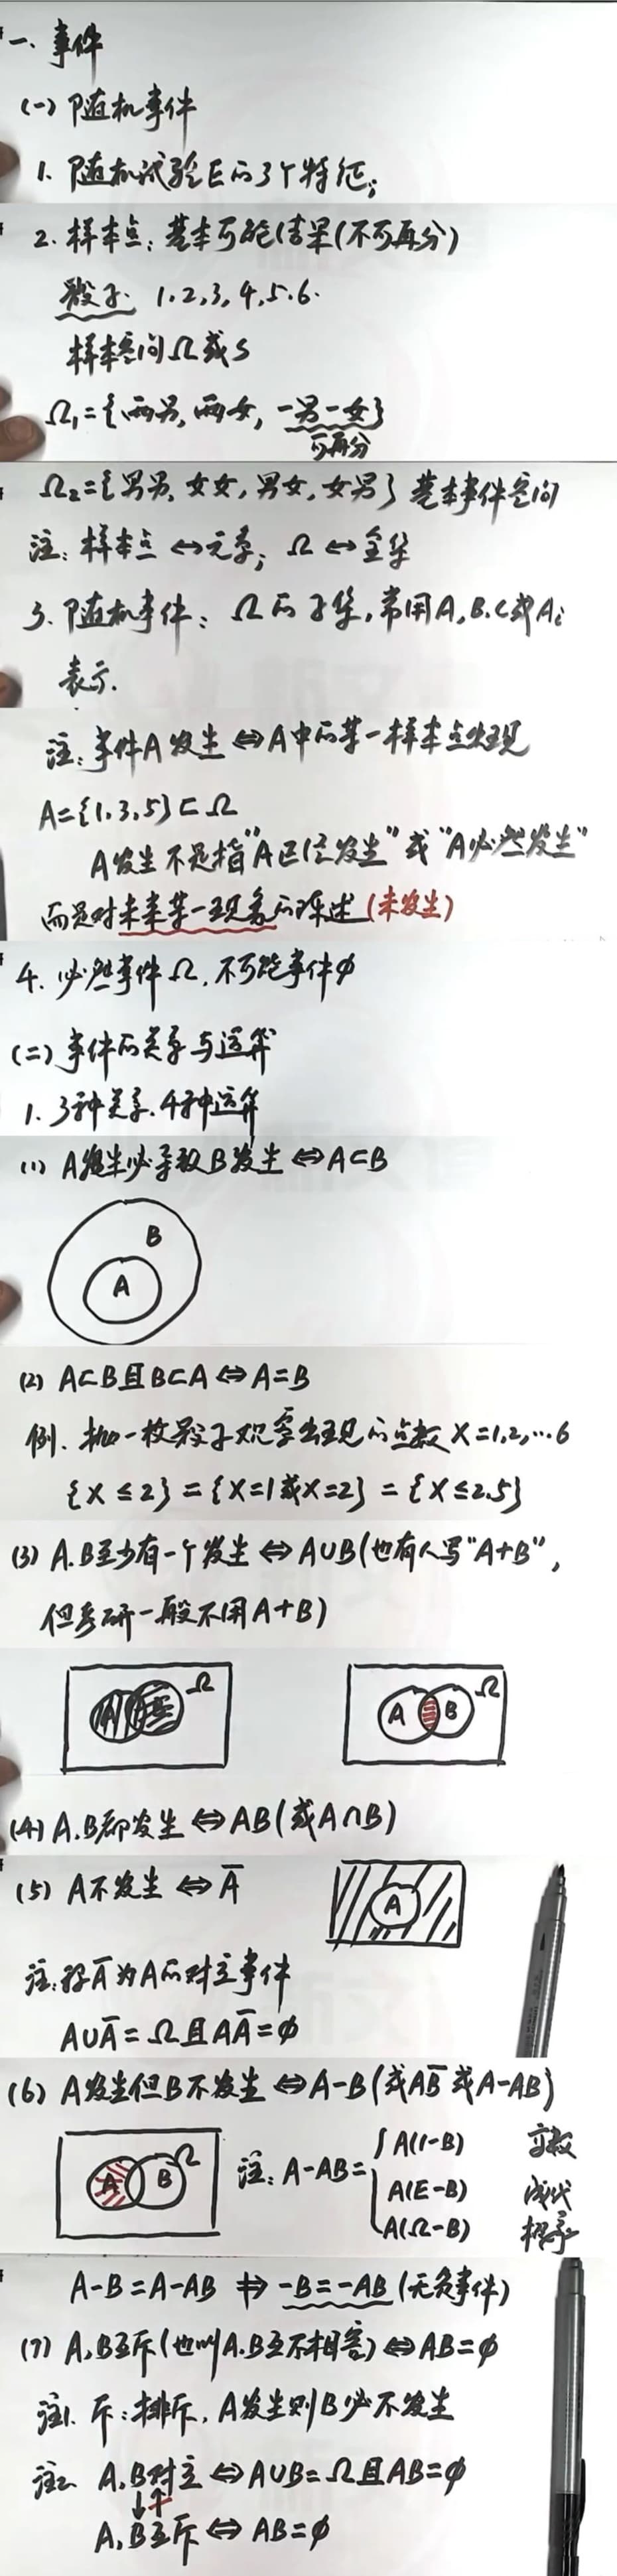 一、事件
(一) 随机事件
1. 随机试验E的3个特征;
2. 样本点: 基本可能结果(不可再分)
骰子: 1.2,3,4,5.6.
样本空间Ω或S
Ω₁={两男, 两女, 一男一女}
可再分
Ω₂={男男, 女女, 男女, 女男} 基本事件空间
注: 样本点 ⇔ 元素; Ω ⇔ 全集
3. 随机事件: Ω的子集, 常用A,B.C或Aᵢ
表示.
注: 事件A发生 ⇔ A中的某一样本点出现
A={1,3,5}⊂Ω
A发生不是指"A已经发生"或"A必然发生"
而是对未来某一现象的陈述(未发生)
4. 必然事件Ω, 不可能事件φ
(二) 事件的关系与运算
1. 3种关系.4种运算
(1) A发生必导致B发生 ⇔ A⊂B
B
A
(2) A⊂B且B⊂A ⇔ A=B
例. 抛一枚骰子观察出现的点数 X=1,2,…6
{X≤2}={X=1或X=2}={X≤2.5}
(3) A.B至少有一个发生 ⇔ A∪B(也有人写"A+B",
但考研一般不用A+B)
A B Ω
A B Ω
(4) A.B都发生 ⇔ AB(或A∩B)
(5) A不发生 ⇔ A̅
A
注: 称A̅为A的对立事件
A∪A̅=Ω且AA̅=φ
(6) A发生但B不发生 ⇔ A-B(或AB̅或A-AB)
A B Ω
注: A-AB= { A(1-B) 高数
A(E-B) 线代
A(Ω-B) 概率
A-B=A-AB ⇏ -B=-AB (无负事件)
(7) A,B互斥(也叫A.B互不相容) ⇔ AB=φ
注1. 斥: 排斥, A发生则B必不发生
注2 A,B对立 ⇔ A∪B=Ω且AB=φ
A,B互斥 ⇔ AB=φ